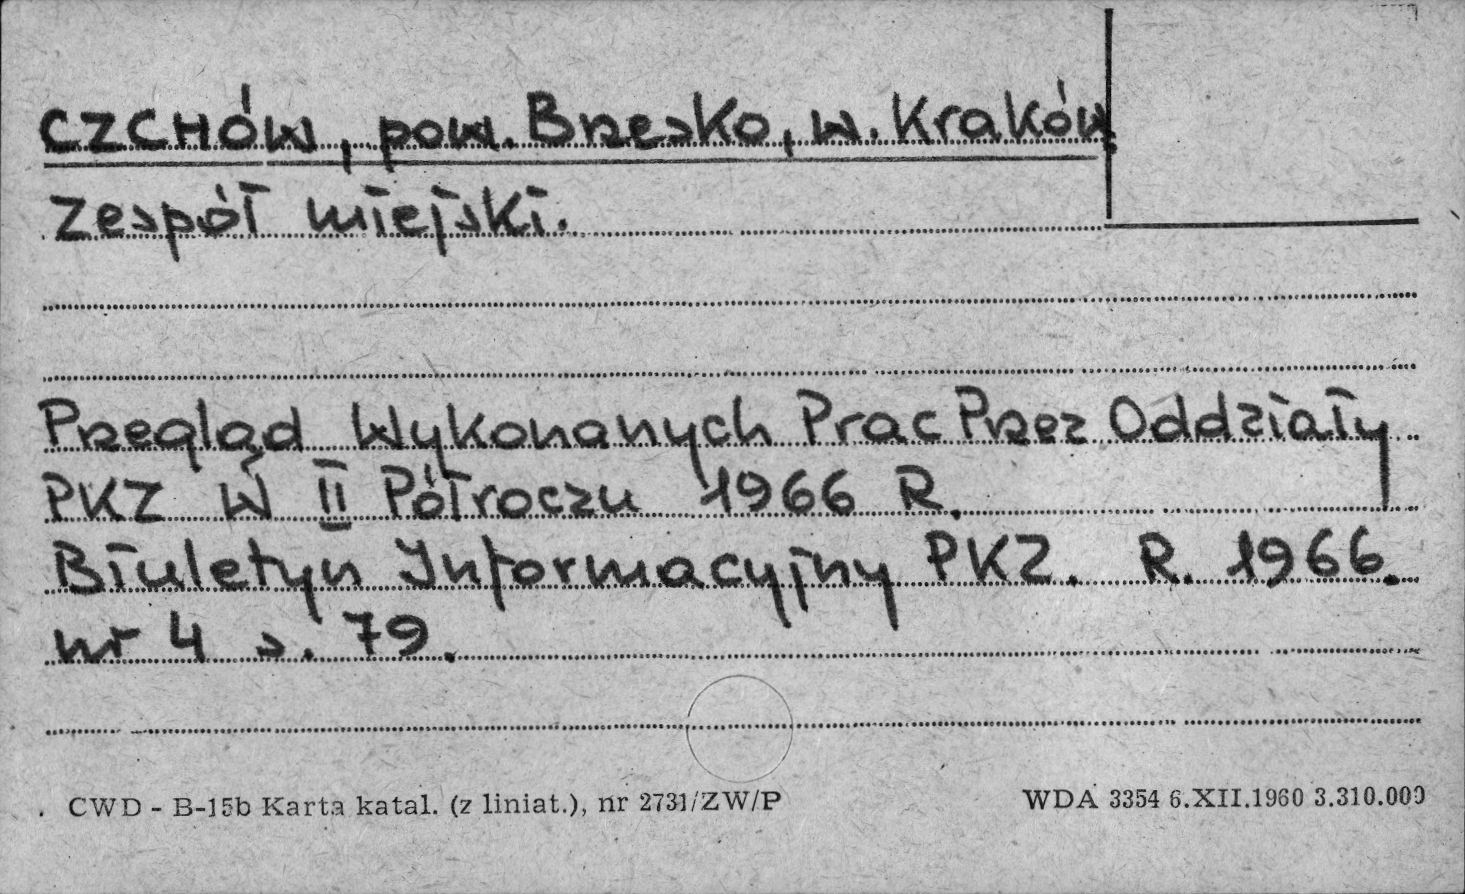 CZCHÓW, pow. Brzesko, w. Kraków
Zespół miejski.
Przegląd Wykonanych Prac Przez Oddziały
PKZ W II Półroczu 1966 R.
Biuletyn Informacyjny PKZ. R. 1966.
nr 4 s. 79.
CWD - B-15b Karta katal. (z liniat.), nr 2731/ZW/P
WDA 3354 6.XII.1960 3.310.000